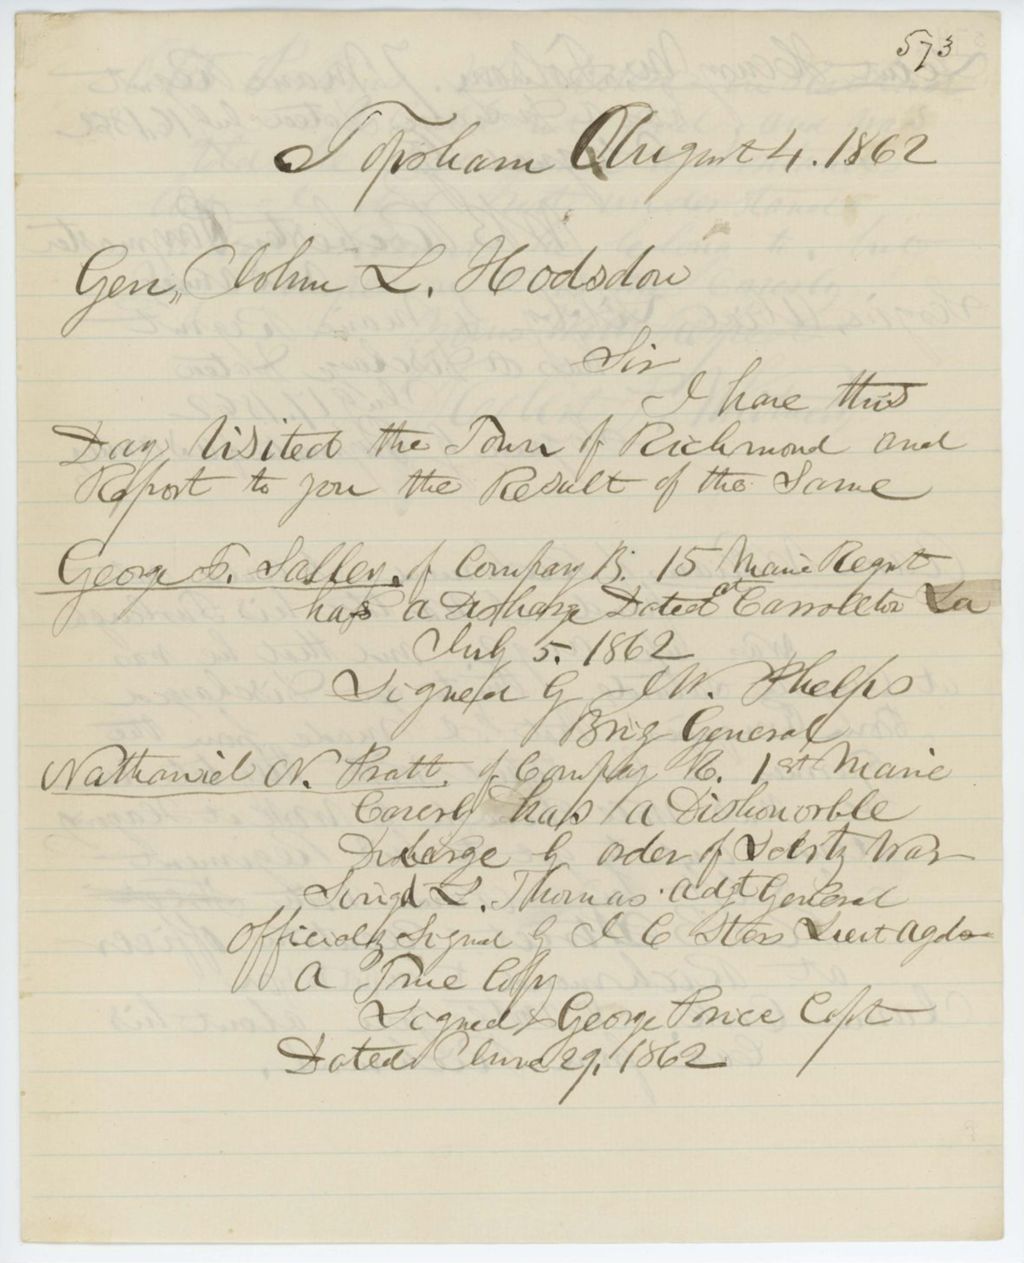 573
Topsham August 4. 1862
Gen, John L. Hodsdon
Sir
I have this
Day Visited the Town of Richmond and
Report to you the Result of the Same
George F. of Company B. 15 Maine Regmt
has a Discharge Dated at Carrollton La
July 5. 1862
Signed by J W. Phelps
Brig General
Nathaniel N. Pratt. of Company K. 1st Maine
has a Dishonorble
Discharge by order of War
L. Thomas Adjt General
Officialy Signed by I C Lieut
A True Copy
Signed George Price Capt
Dated June 29, 1862